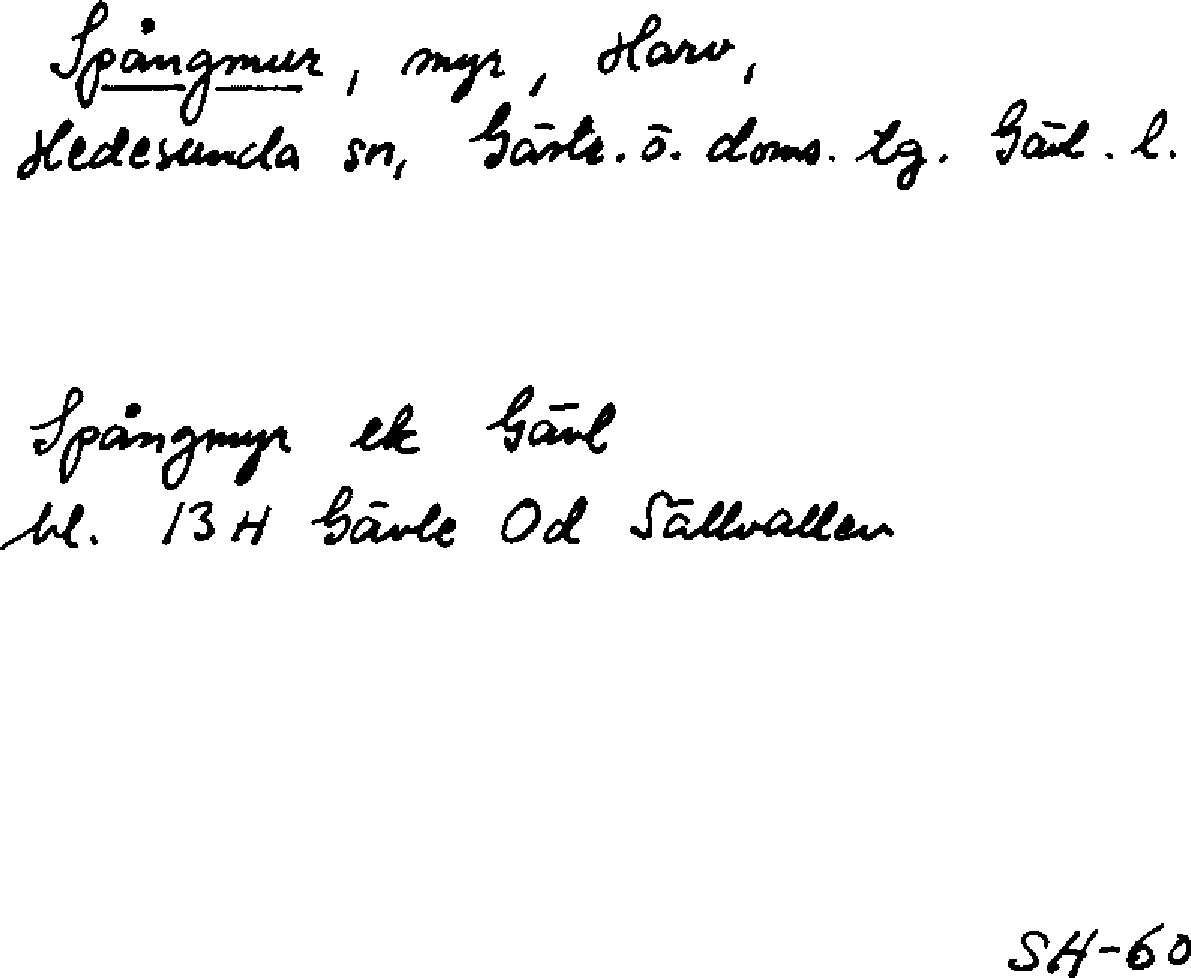 Spångmur, myr, Harv,
Hedesunda sn, Gästr. ö. doms. tg. Gävl. l.
Spångmyr ek Gävl
bl. 13 H Gävle 0d Sällvallen
SH-60